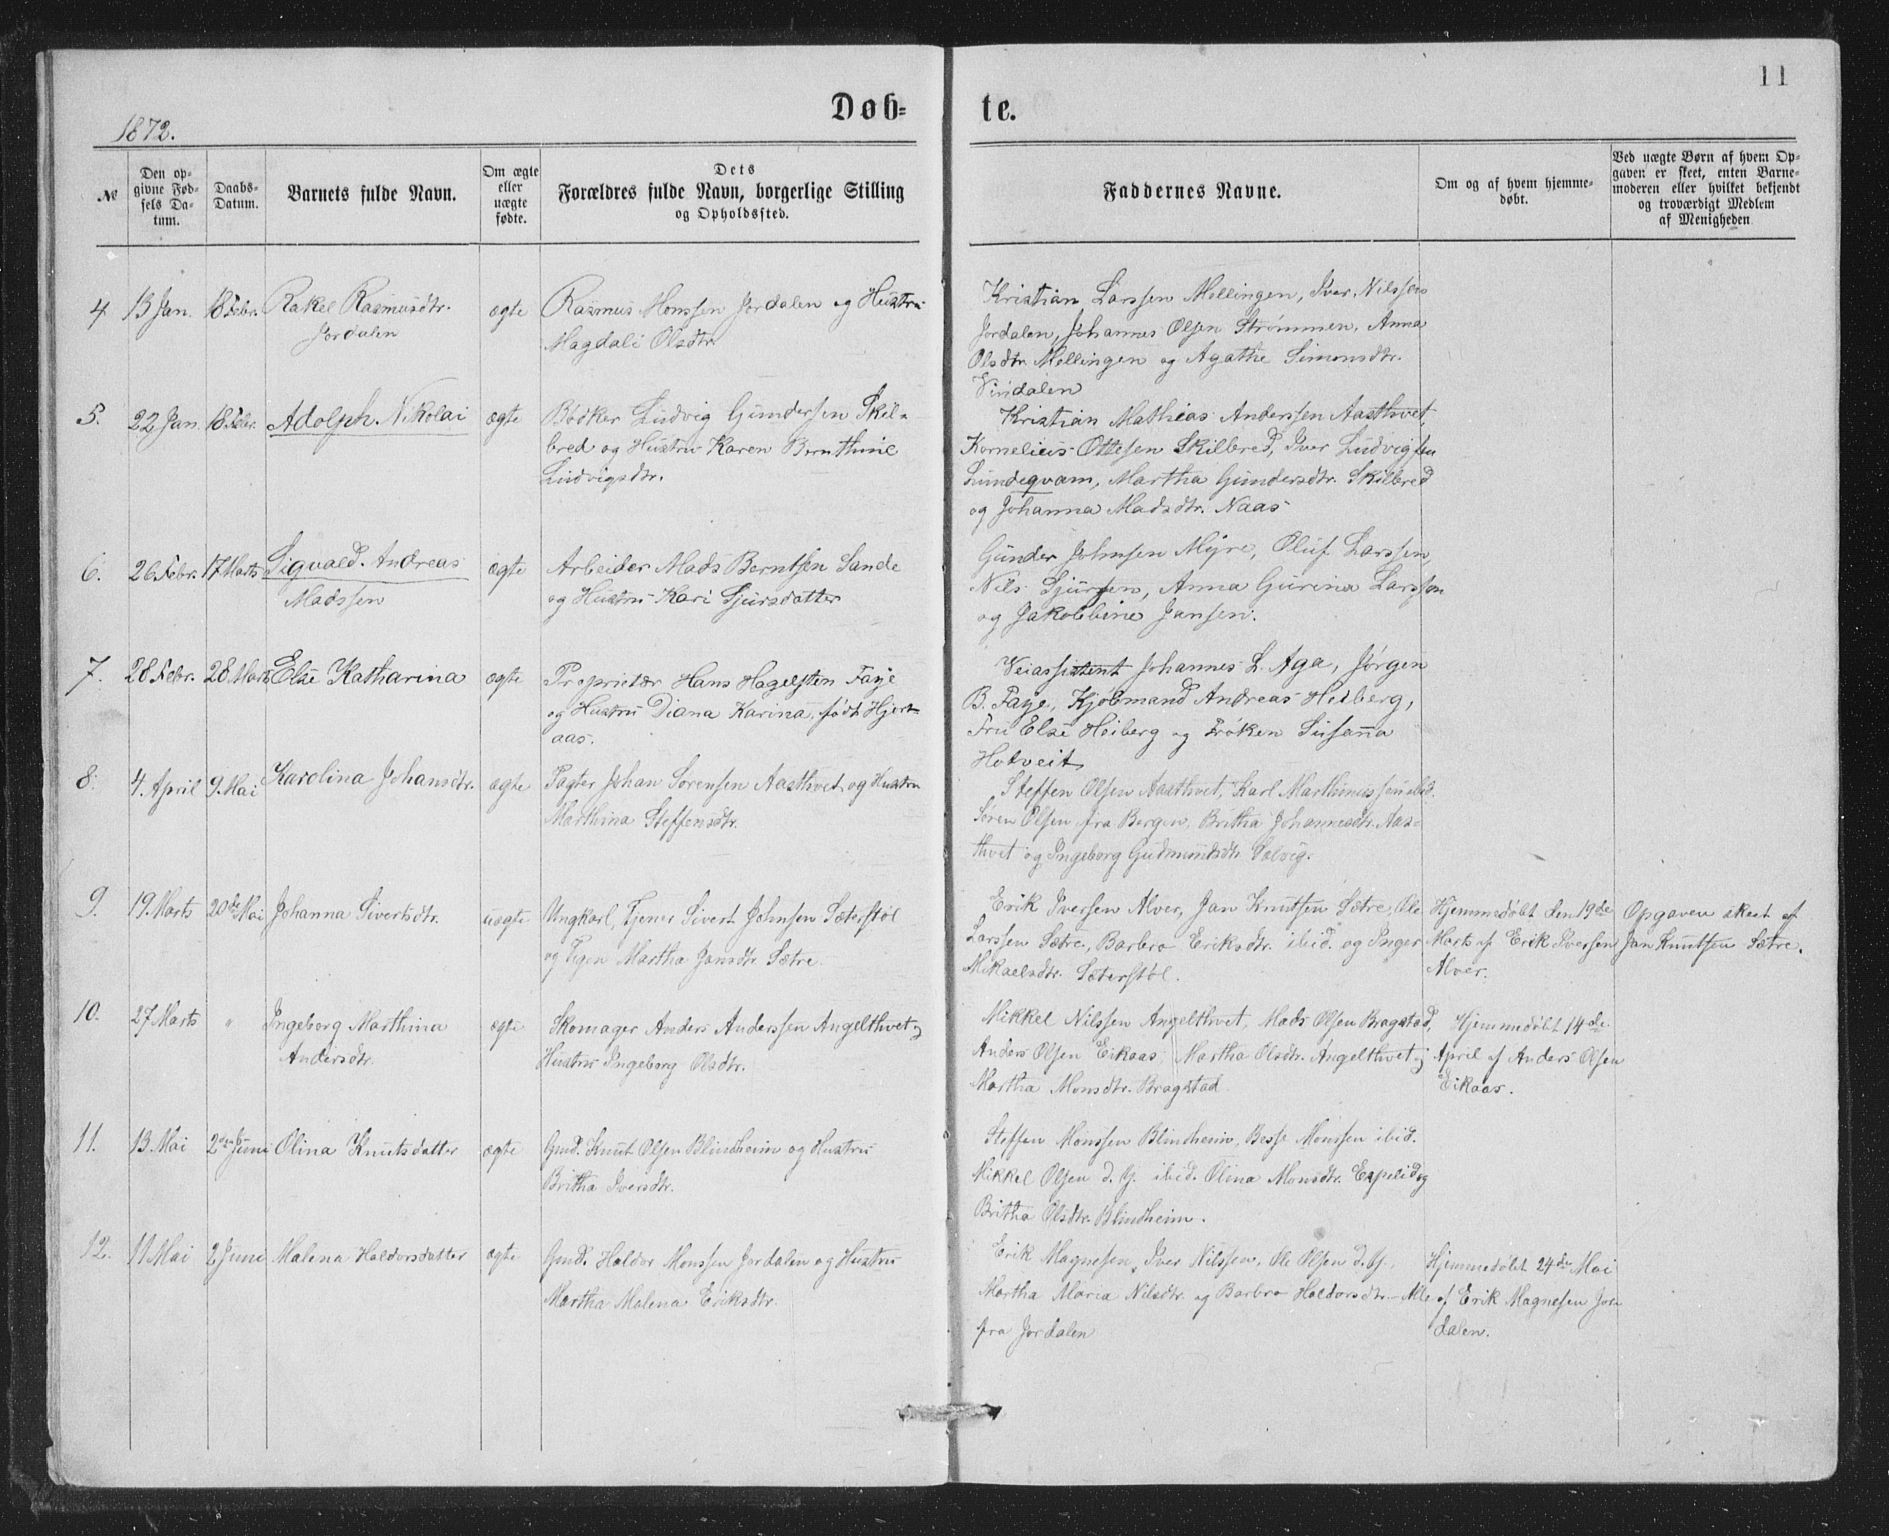 11
Døb-
te.
1872.
№
Den op-
givne Fød-
sels Da-
tum.
Daabs-
Datum.
Barnets fulde Navn.
Om ægte
eller
uægte
fødte.
Dets
Forældres fulde Navn, borgerlige Stilling
og Opholdssted.
Faddernes Navne.
Om og af hvem hjemme-
døbt.
Ved uægte Børn af hvem Op-
gaven er skeet, enten Barne-
moderen eller hvilket bekjendt
og troværdigt Medlem
af Menigheden
4
13 Jan.
18 Febr.
Rakel Rasmusdtr.
Jordalen
ægte
Rasmus Monssen Jordalen og Hustru
Magdali Olsdtr.
Kristian Larssen Mellingen, Iver Nilssen
Jordalen, Johannes Olsen Strømmen, Anna
Olsdtr. Mellingen og Agathe Simonsdtr.
Vindalen
5.
22 Jan.
18 Febr.
Adolph Nikolai
ægte
Bødker Ludvig Gundersen Skil-
bred og Hustru Karen Bernthine
Ludvigsdtr.
Kristian Mathias Anderssen Aasthvet,
Kornelius Ottesen Skilbred, Iver Ludvigsen
Lundeqvam, Martha Gundersdtr. Skilbred
og Johanna Madsdtr. Naas
6.
26 Febr.
17 Marts
Sigvald Andreas
Madssen
ægte
Arbeider Mads Berntsen Sande
og Hustru Kari Sjursdatter
Gunder Johnsen Myre, Oluf Larssen,
Nils Sjursen, Anna Gurina Larssen
og Jakobbine Jansen.
7.
28 Febr.
28 Marts
Else Katharina
ægte
Proprietær Hans Hagelsten Faye
og Hustru Diana Karina, født Hjort-
aas.
Veiassistent Johannes L. Aga, Jørgen
B. Faye, Kjøbmand Andreas Heiberg,
Fru Else Heiberg og Frøken Susanna
Hotveit
8.
4. April
9. Mai
Karolina Johansdtr.
ægte
Pagter Johan Sørensen Aasthvet og Hustru
Marthina Steffensdtr.
Steffen Olsen Aasthvet, Karl Marthinussen ibid.
Søren Olsen fra Bergen, Britha Johannesdtr. Aas-
thvet og Ingeborg Gudmundsdtr. Solvig.
9.
19. Marts
20de Mai
Johanna Sivertsdtr.
uægte
Ungkarl, Tjener Sivert Johnsen Sæterstøl
og Pigen Martha Jansdtr. Sætre.
Erik Iversen Alver, Jan Knutsen Sætre, Ole
Larssen Sætre, Barbro Eriksdtr. ibid. og Inger
Mikaelsdtr. Sæterstøl.
Hjemmedøbt den 19de
Marts af Erik Iversen
Alver.
Opgaven skeet af
Jan Knutsen Sætre.
10.
27 Marts
"
Ingeborg Marthina
Andersdtr.
ægte
Skomager Anders Anderssen Angelthvet og
Hustru Ingeborg Olsdtr.
Mikkel Nilssen Angelthvet, Mads Olsen Bragstad,
Anders Olsen Eikaas, Martha Olsdtr. Angelthvet og
Martha Monsdtr. Bragstad
Hjemmedøbt 14de
April af Anders Olsen
Eikaas.
11.
13. Mai
2den Juni
Olina Knutsdatter
ægte
Gmd. Knut Olsen Blindheim og Hustru
Britha Iversdtr.
Steffen Monssen Blindheim, Besse Monssen ibid.
Mikkel Olsen d. Y. ibid. Olina Monsdtr. Espelid og
Britha Olsdtr. Blindheim.
12.
11 Mai
2 Juni
Malena Haldorsdatter
ægte
Gmd. Haldor Monssen Jordalen og Hustru
Martha Malena Eriksdtr.
Erik Magnesen, Iver Nilssen, Ole Olsen d. Y.,
Martha Maria Nilsdtr. og Barbro Haldorsdtr. – Alle
fra Jordalen
Hjemmedøbt 24de Mai
af Erik Magnesen Jor-
dalen.